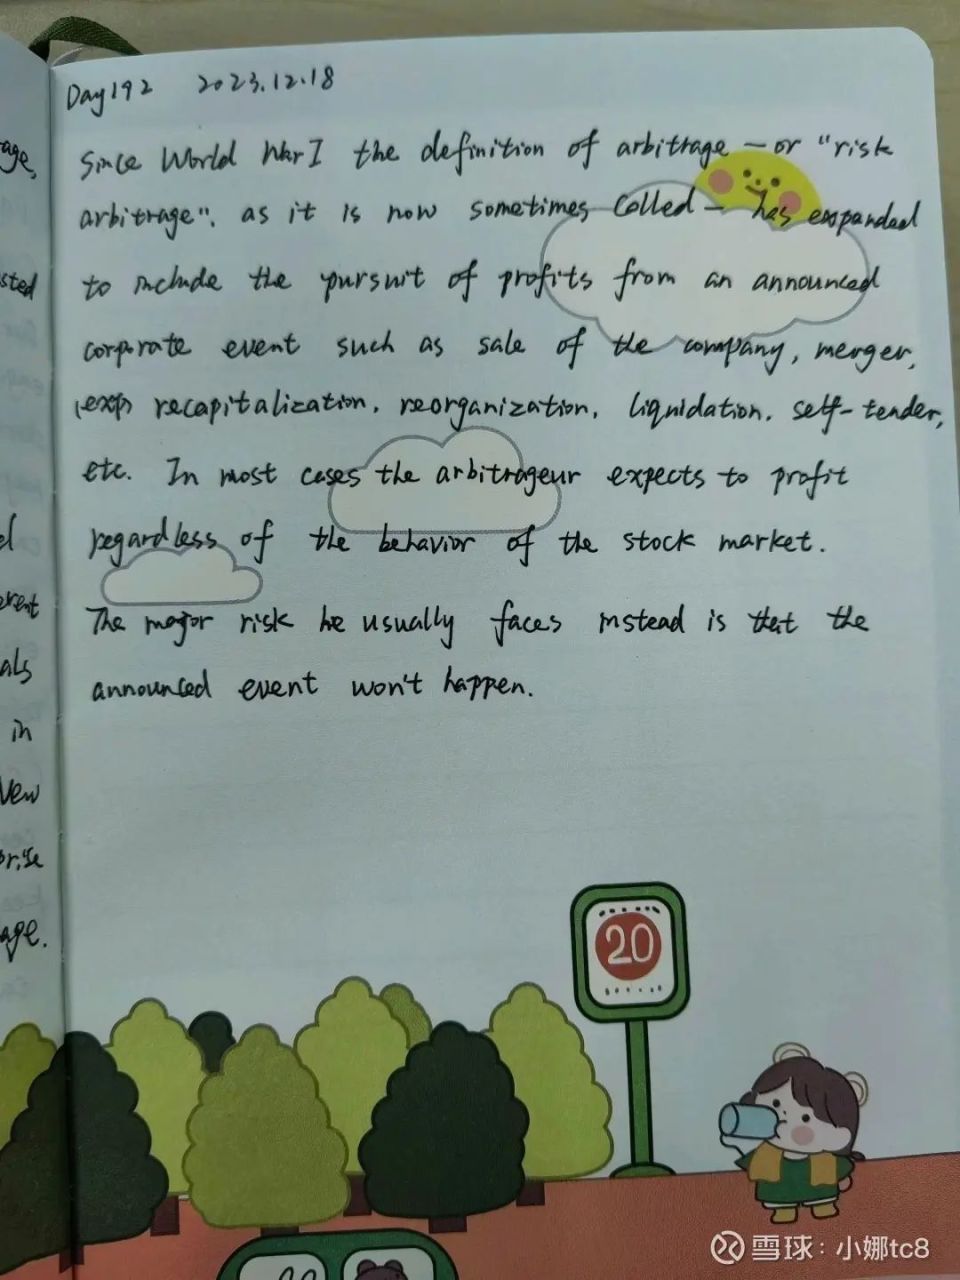 Day192 2023.12.18
Since World War I the definition of arbitrage — or "risk
arbitrage", as it is now sometimes called — has expanded
to include the pursuit of profits from an announced
corporate event such as sale of the company, merger,
recapitalization, reorganization, liquidation, self-tender,
etc. In most cases the arbitrageur expects to profit
regardless of the behavior of the stock market.
The major risk he usually faces instead is that the
announced event won't happen.
in
20
雪球：小娜tc8